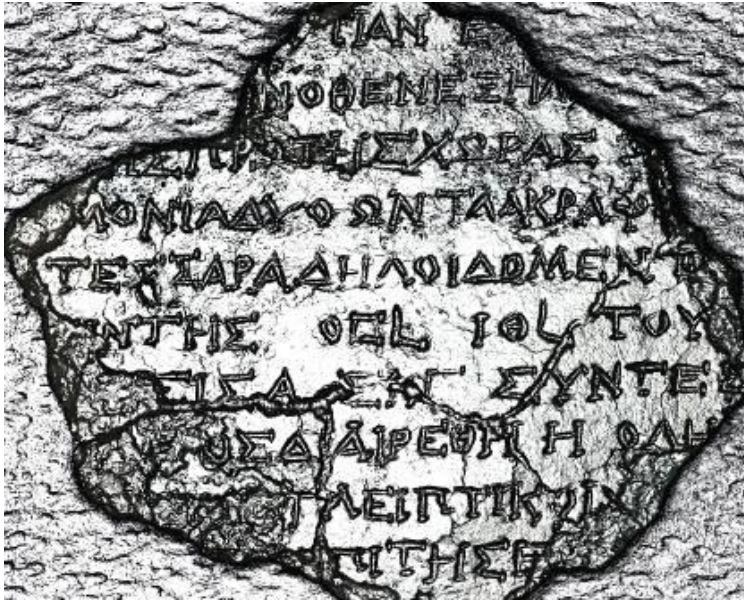 ΤΙΑΝ Ε
ΝΟΘΕΝΕΞΗΛ
ΗΣΠΡΩΤΗΣΧΩΡΑΣ
ΜΟΝΙΑΔΥΟΩΝΤΑΑΚΡΑΦ
ΤΕΣΣΑΡΑΔΗΛΟΙΔΟΜΕΝΤ
ΝΤΗΣ ΟϚL ΙΘL ΤΟΥ
ΕΙΣΑ ΣΚΓ ΣΥΝΤΕΣ
ΟΥΣΔΙΑΙΡΕΘΗ Η ΟΛΗ
ΓΛΕΙΠΤΙΚΟΙΧ
ΠΙΤΗΣΕ